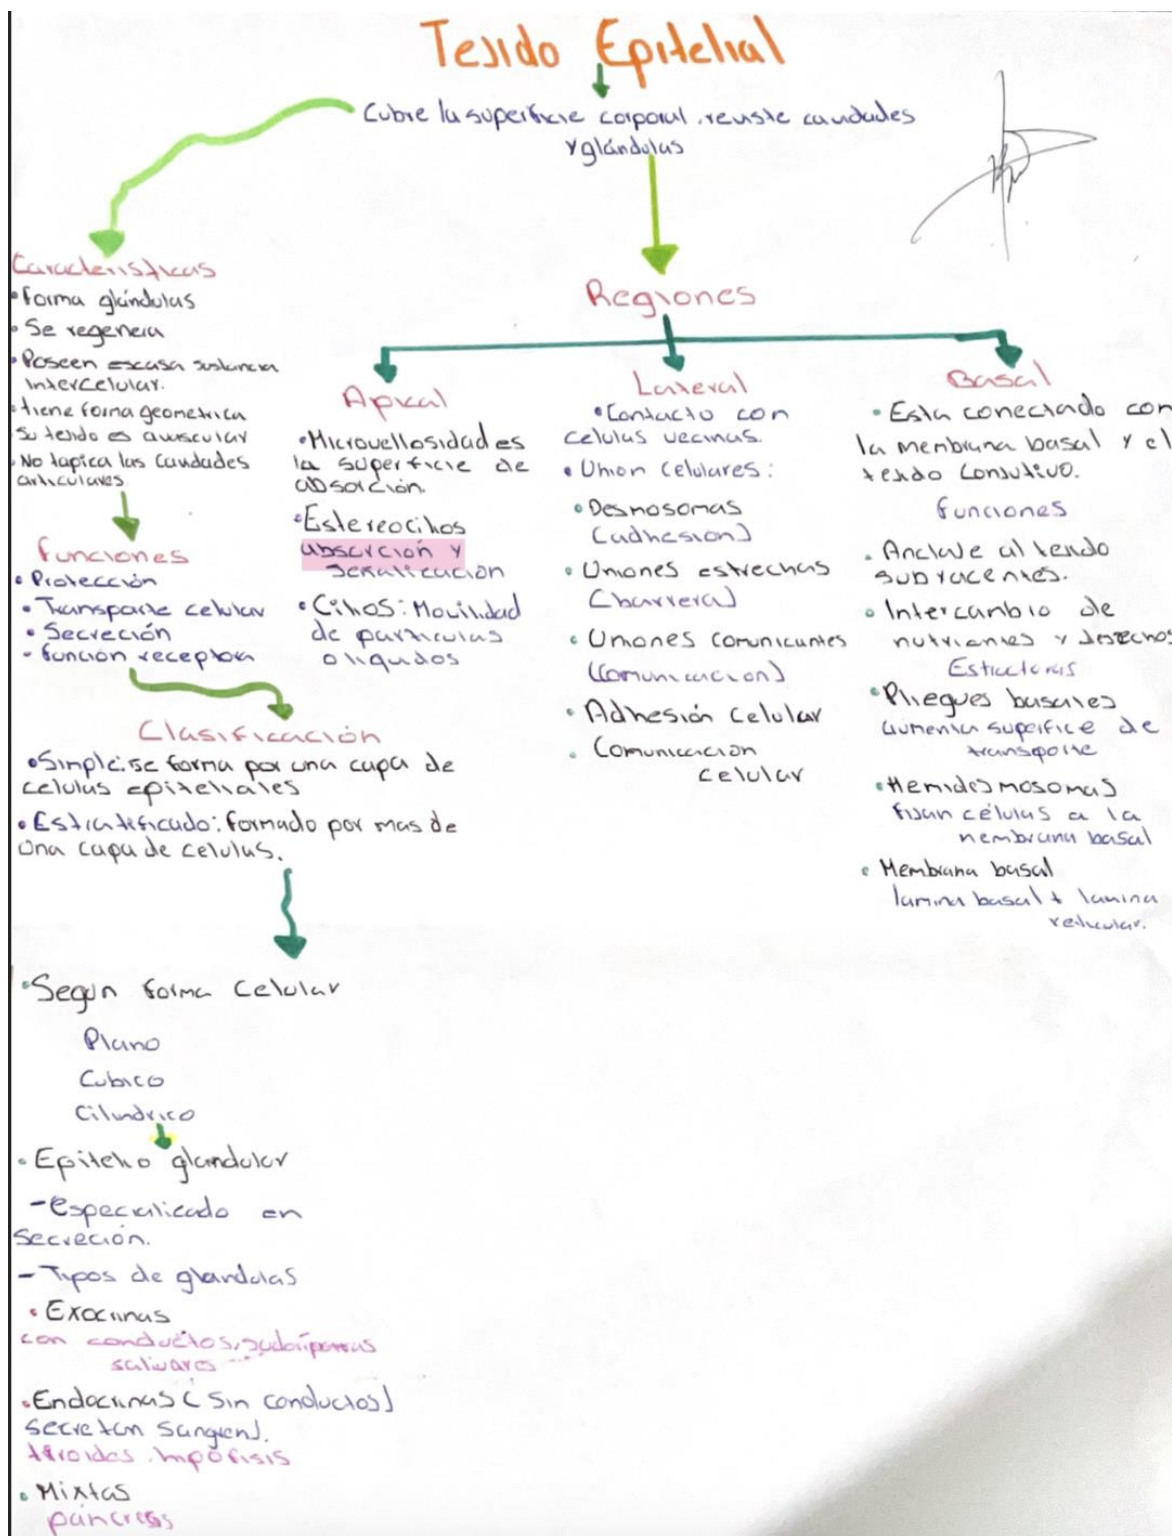 Tejido Epitelial
Cubre la superficie corporal, reviste cavidades
y glándulas
Caracteristicas
• Forma glándulas
• Se regenera
• Poseen escasa sustancia
intercelular.
• tiene forma geometrica
Su tejido es avascular
• No tapica las Cavidades
articulares
Funciones
• Protección
• Transporte celular
• Secreción
- función receptora
Clasificación
• Simple: se forma por una capa de
celulas epiteliales
• Estratificado: formado por mas de
una capa de celulas.
• Segun forma celular
Plano
Cubico
Cilindrico
• Epitelio glandular
- Especializado en
Secreción.
- Tipos de glandulas
• Exocrinas
con conductos, sudoriparas
salivares
• Endocrinas (Sin conductos)
secretan
tiroides, hipófisis
• Mixtas
páncreas
Regiones
Apical
• Microvellosidades
la superficie de
absorción.
• Estereocilios
absorción y
señalización
• Cilios: Movilidad
de particulas
o liquidos
Lateral
• Contacto con
celulas vecinas.
• Union celulares:
• Desmosomas
(adhesión)
• Uniones estrechas
(barrera)
• Uniones comunicantes
(Comunicacion)
• Adhesión Celular
• Comunicacion
celular
Basal
• Esta conectado con
la membrana basal y el
tejido
Funciones
• Anclaje al tejido
subyacentes.
• Intercambio de
nutrientes y desechos
Estructuras
• Pliegues basales
aumenta superfice de
transporte
• Hemidesmosomas
fijan células a la
membrana basal
• Membrana basal
lamina basal + lamina
reticular.